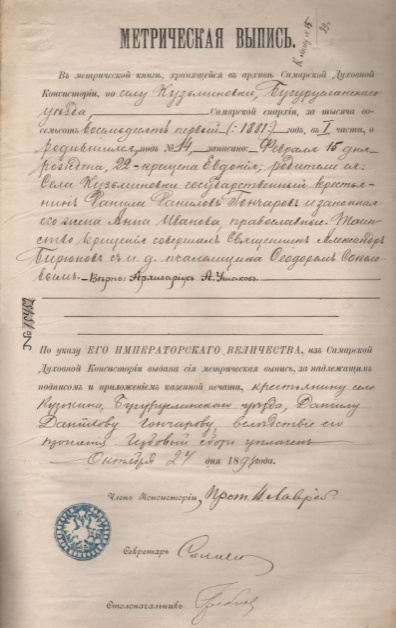 К делу № 15
МЕТРИЧЕСКАЯ ВЫПИСЬ.
Въ метрической книгѣ, хранящейся въ архивѣ Самарской Духовной
Консисторіи, по селу Кузьминовки, Бугурусланскаго
уѣзда, Самарской епархіи, за тысяча во-
семьсотъ восемьдесятъ первый (1881) годъ, въ I части, о
родившихся, подъ № 14, записано: Февраля 15 дня
рождена, 22 крещена Евдокія; родители ея:
Села Кузьминовки государственный крестья-
нинъ Данилъ Даниловъ Гончаровъ и законная
его жена Анна Иванова, православные. Таин-
ство крещенія совершалъ Священникъ Александръ
Бирюковъ съ и. д. псаломщика Ѳеодоромъ Соколо-
вымъ. Вѣрно: Архиваріусъ А. Ушаковъ
По указу ЕГО ИМПЕРАТОРСКАГО ВЕЛИЧЕСТВА, изъ Самарской
Духовной Консисторіи выдана сія метрическая выпись, за надлежащимъ
подписомъ и приложеніемъ казенной печати, крестьянину села
Бугурусланскаго уѣзда, Данилу
Данилову Гончарову, вслѣдствіе его
прошенія. Гербовый сборъ уплаченъ.
Октября 24 дня 189 года.
Членъ Консисторіи, Прот.
Секретарь
Столоначальникъ